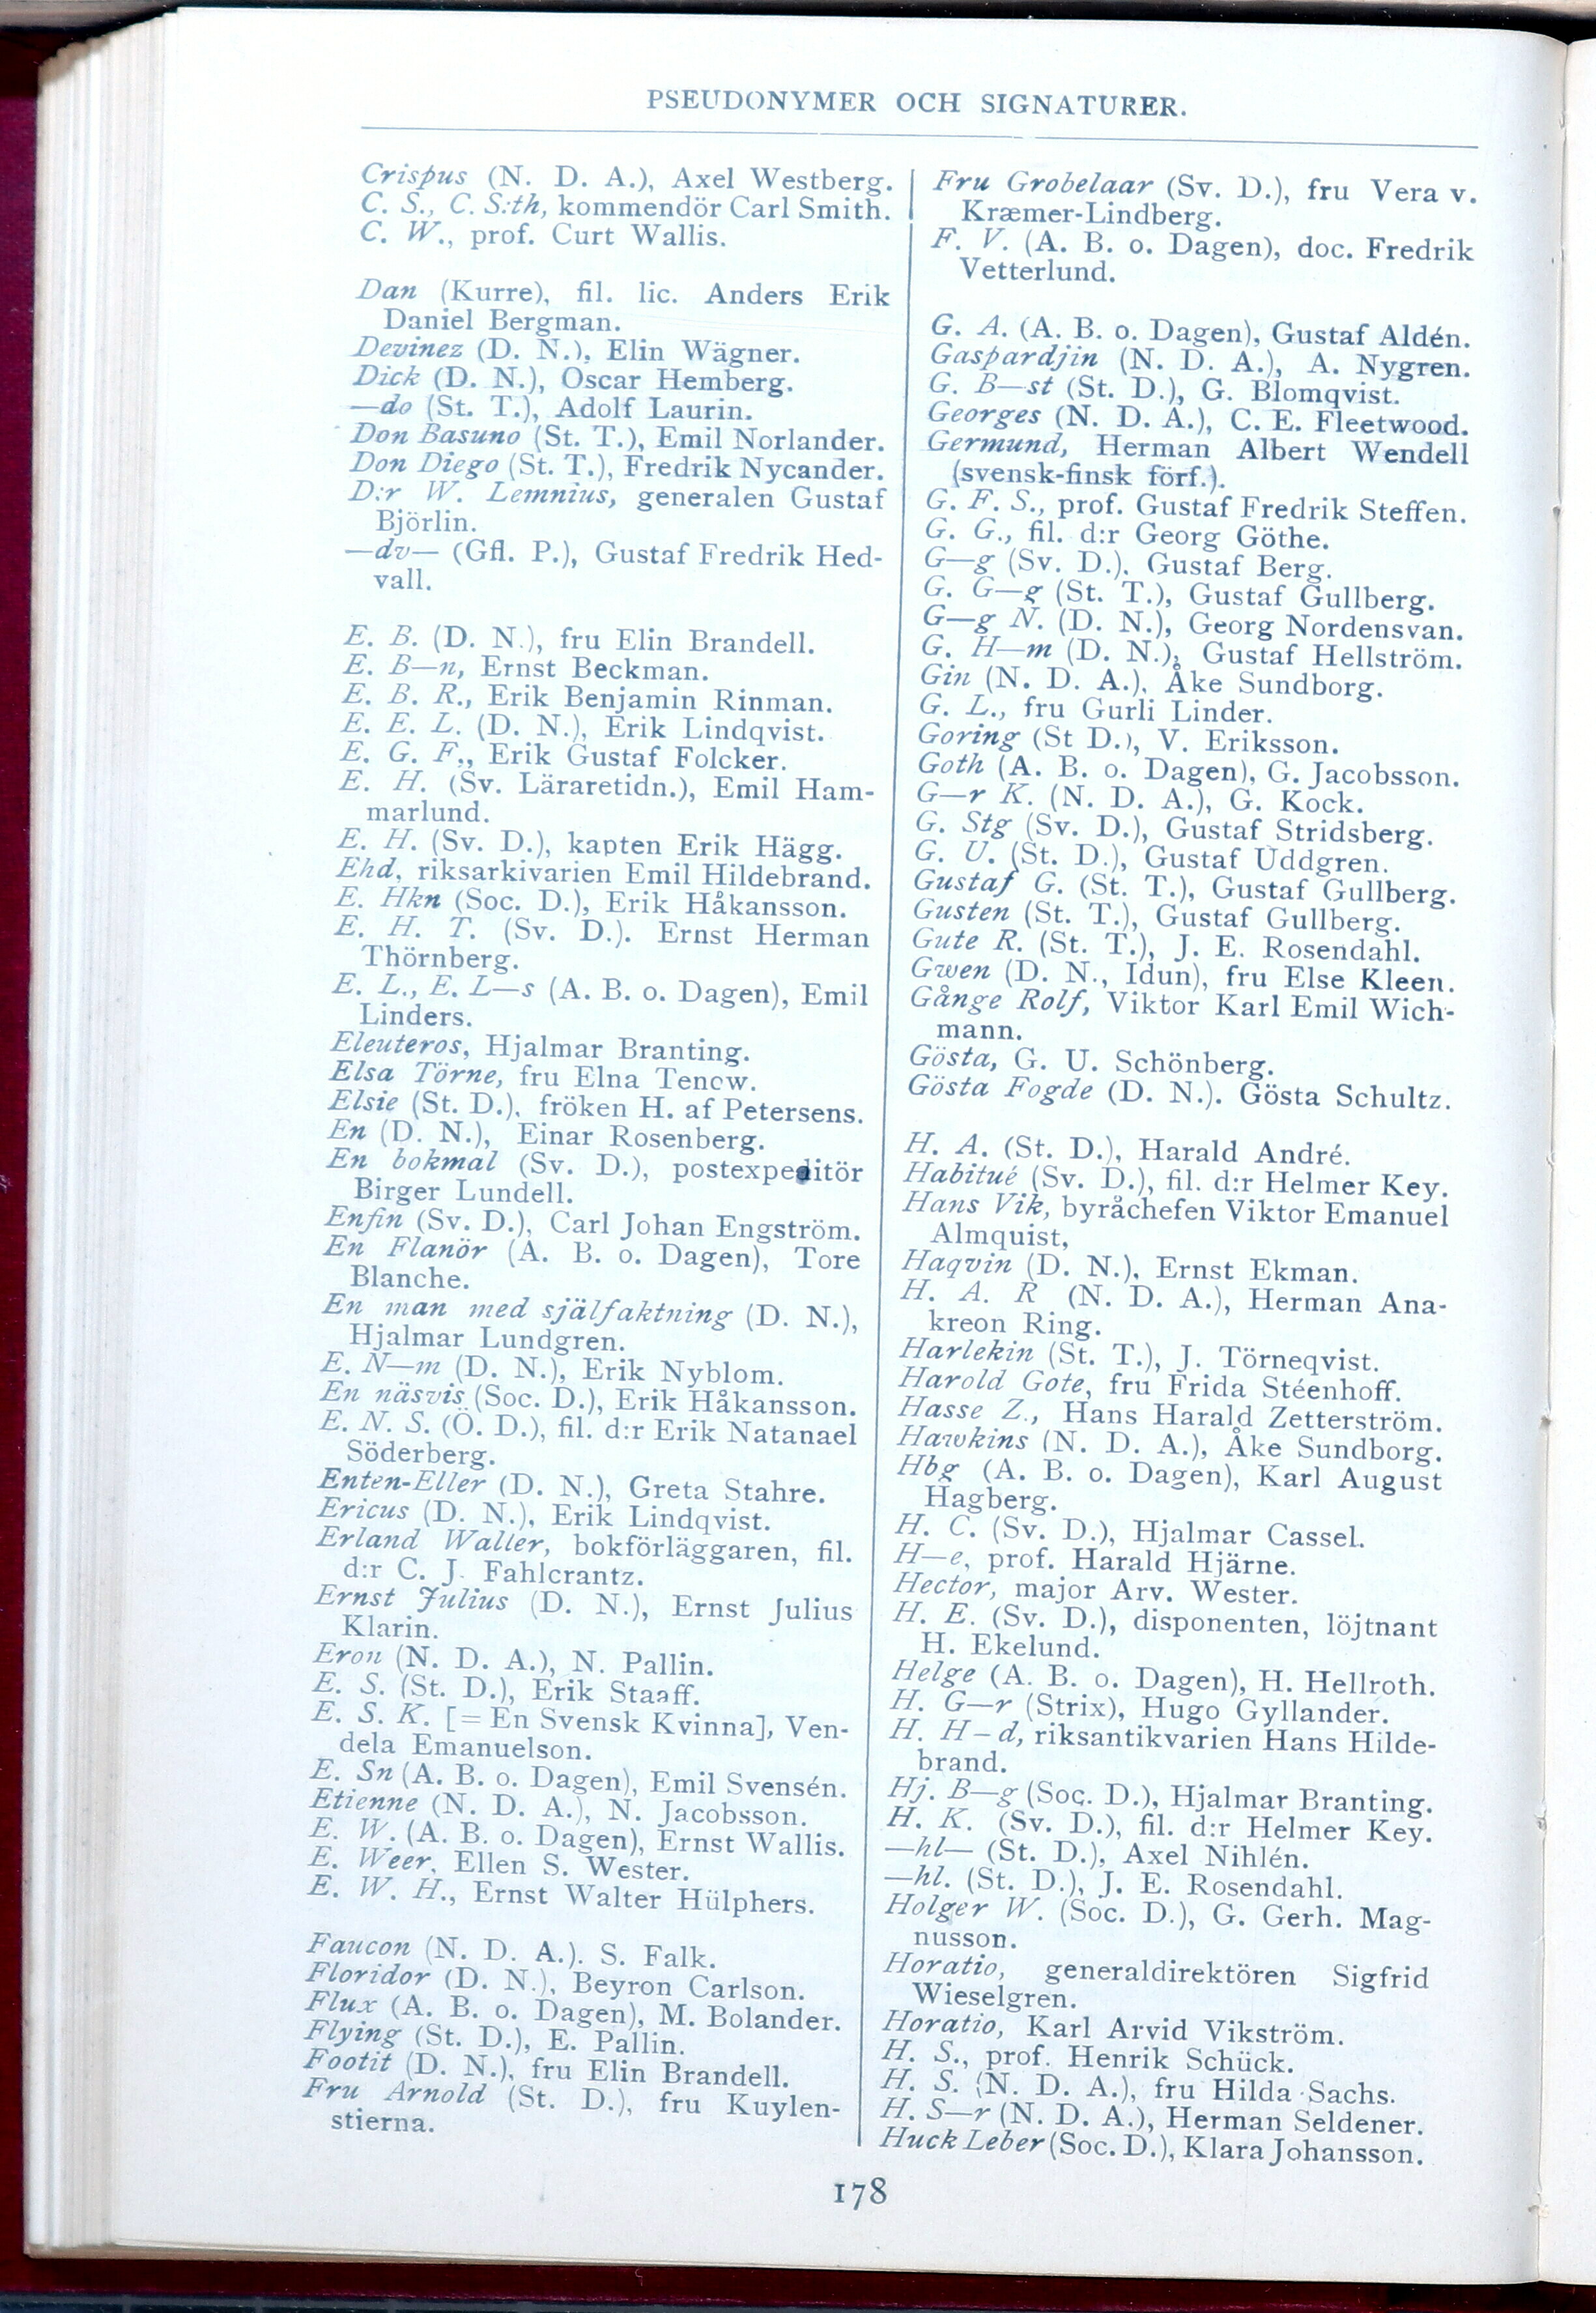 PSEUDONYMER OCH SIGNATURER.
Crispus (N. D. A.), Axel Westberg.
C. S., C. S:th, kommendör Carl Smith.
C. W., prof. Curt Wallis.
Dan (Kurre), fil. lic. Anders Erik
Daniel Bergman.
Devinez (D. N.), Elin Wägner.
Dick (D. N.), Oscar Hemberg.
—do (St. T.), Adolf Laurin.
Don Basuno (St. T.), Emil Norlander.
Don Diego (St. T.), Fredrik Nycander.
D:r W. Lemnius, generalen Gustaf
Björlin.
—dv— (Gfl. P.), Gustaf Fredrik Hed-
vall.
E. B. (D. N.), fru Elin Brandell.
E. B—n, Ernst Beckman.
E. B. R., Erik Benjamin Rinman.
E. E. L. (D. N.), Erik Lindqvist.
E. G. F., Erik Gustaf Folcker.
E. H. (Sv. Läraretidn.), Emil Ham-
marlund.
E. H. (Sv. D.), kapten Erik Hägg.
Ehd, riksarkivarien Emil Hildebrand.
E. Hkn (Soc. D.), Erik Håkansson.
E. H. T. (Sv. D.). Ernst Herman
Thörnberg.
E. L., E. L—s (A. B. o. Dagen), Emil
Linders.
Eleuteros, Hjalmar Branting.
Elsa Törne, fru Elna Tenow.
Elsie (St. D.), fröken H. af Petersens.
En (D. N.), Einar Rosenberg.
En bokmal (Sv. D.), postexpeditör
Birger Lundell.
Enfin (Sv. D.), Carl Johan Engström.
En Flanör (A. B. o. Dagen), Tore
Blanche.
En man med själfaktning (D. N.),
Hjalmar Lundgren.
E. N—m (D. N.), Erik Nyblom.
En näsvis (Soc. D.), Erik Håkansson.
E. N. S. (Ö. D.), fil. d:r Erik Natanael
Söderberg.
Enten-Eller (D. N.), Greta Stahre.
Ericus (D. N.), Erik Lindqvist.
Erland Waller, bokförläggaren, fil.
d:r C. J. Fahlcrantz.
Ernst Julius (D. N.), Ernst Julius
Klarin.
Eron (N. D. A.), N. Pallin.
E. S. (St. D.), Erik Staaff.
E. S. K. [= En Svensk Kvinna], Ven-
dela Emanuelson.
E. Sn (A. B. o. Dagen), Emil Svensén.
Etienne (N. D. A.), N. Jacobsson.
E. W. (A. B. o. Dagen), Ernst Wallis.
E. Weer, Ellen S. Wester.
E. W. H., Ernst Walter Hülphers.
Faucon (N. D. A.). S. Falk.
Floridor (D. N.), Beyron Carlson.
Flux (A. B. o. Dagen), M. Bolander.
Flying (St. D.), E. Pallin.
Footit (D. N.), fru Elin Brandell.
Fru Arnold (St. D.), fru Kuylen-
stierna.
Fru Grobelaar (Sv. D.), fru Vera v.
Kræmer-Lindberg.
F. V. (A. B. o. Dagen), doc. Fredrik
Vetterlund.
G. A. (A. B. o. Dagen), Gustaf Aldén.
Gaspardjin (N. D. A.), A. Nygren.
G. B—st (St. D.), G. Blomqvist.
Georges (N. D. A.), C. E. Fleetwood.
Germund, Herman Albert Wendell
(svensk-finsk förf.).
G. F. S., prof. Gustaf Fredrik Steffen.
G. G., fil. d:r Georg Göthe.
G—g (Sv. D.), Gustaf Berg.
G. G—g (St. T.), Gustaf Gullberg.
G—g N. (D. N.), Georg Nordensvan.
G. H—m (D. N.), Gustaf Hellström.
Gin (N. D. A.), Åke Sundborg.
G. L., fru Gurli Linder.
Goring (St D.), V. Eriksson.
Goth (A. B. o. Dagen), G. Jacobsson.
G—r K. (N. D. A.), G. Kock.
G. Stg (Sv. D.), Gustaf Stridsberg.
G. U. (St. D.), Gustaf Uddgren.
Gustaf G. (St. T.), Gustaf Gullberg.
Gusten (St. T.), Gustaf Gullberg.
Gute R. (St. T.), J. E. Rosendahl.
Gwen (D. N., Idun), fru Else Kleen.
Gånge Rolf, Viktor Karl Emil Wich-
mann.
Gösta, G. U. Schönberg.
Gösta Fogde (D. N.). Gösta Schultz.
H. A. (St. D.), Harald André.
Habitué (Sv. D.), fil. d:r Helmer Key.
Hans Vik, byråchefen Viktor Emanuel
Almquist,
Haqvin (D. N.), Ernst Ekman.
H. A. R (N. D. A.), Herman Ana-
kreon Ring.
Harlekin (St. T.), J. Törneqvist.
Harold Gote, fru Frida Stéenhoff.
Hasse Z., Hans Harald Zetterström.
Hawkins (N. D. A.), Åke Sundborg.
Hbg (A. B. o. Dagen), Karl August
Hagberg.
H. C. (Sv. D.), Hjalmar Cassel.
H—e, prof. Harald Hjärne.
Hector, major Arv. Wester.
H. E. (Sv. D.), disponenten, löjtnant
H. Ekelund.
Helge (A. B. o. Dagen), H. Hellroth.
H. G—r (Strix), Hugo Gyllander.
H. H—d, riksantikvarien Hans Hilde-
brand.
Hj. B—g (Soc. D.), Hjalmar Branting.
H. K. (Sv. D.), fil. d:r Helmer Key.
—hl— (St. D.), Axel Nihlén.
—hl. (St. D.), J. E. Rosendahl.
Holger W. (Soc. D.), G. Gerh. Mag-
nusson.
Horatio, generaldirektören Sigfrid
Wieselgren.
Horatio, Karl Arvid Vikström.
H. S., prof. Henrik Schück.
H. S. (N. D. A.), fru Hilda Sachs.
H. S—r (N. D. A.), Herman Seldener.
Huck Leber (Soc. D.), Klara Johansson.
178